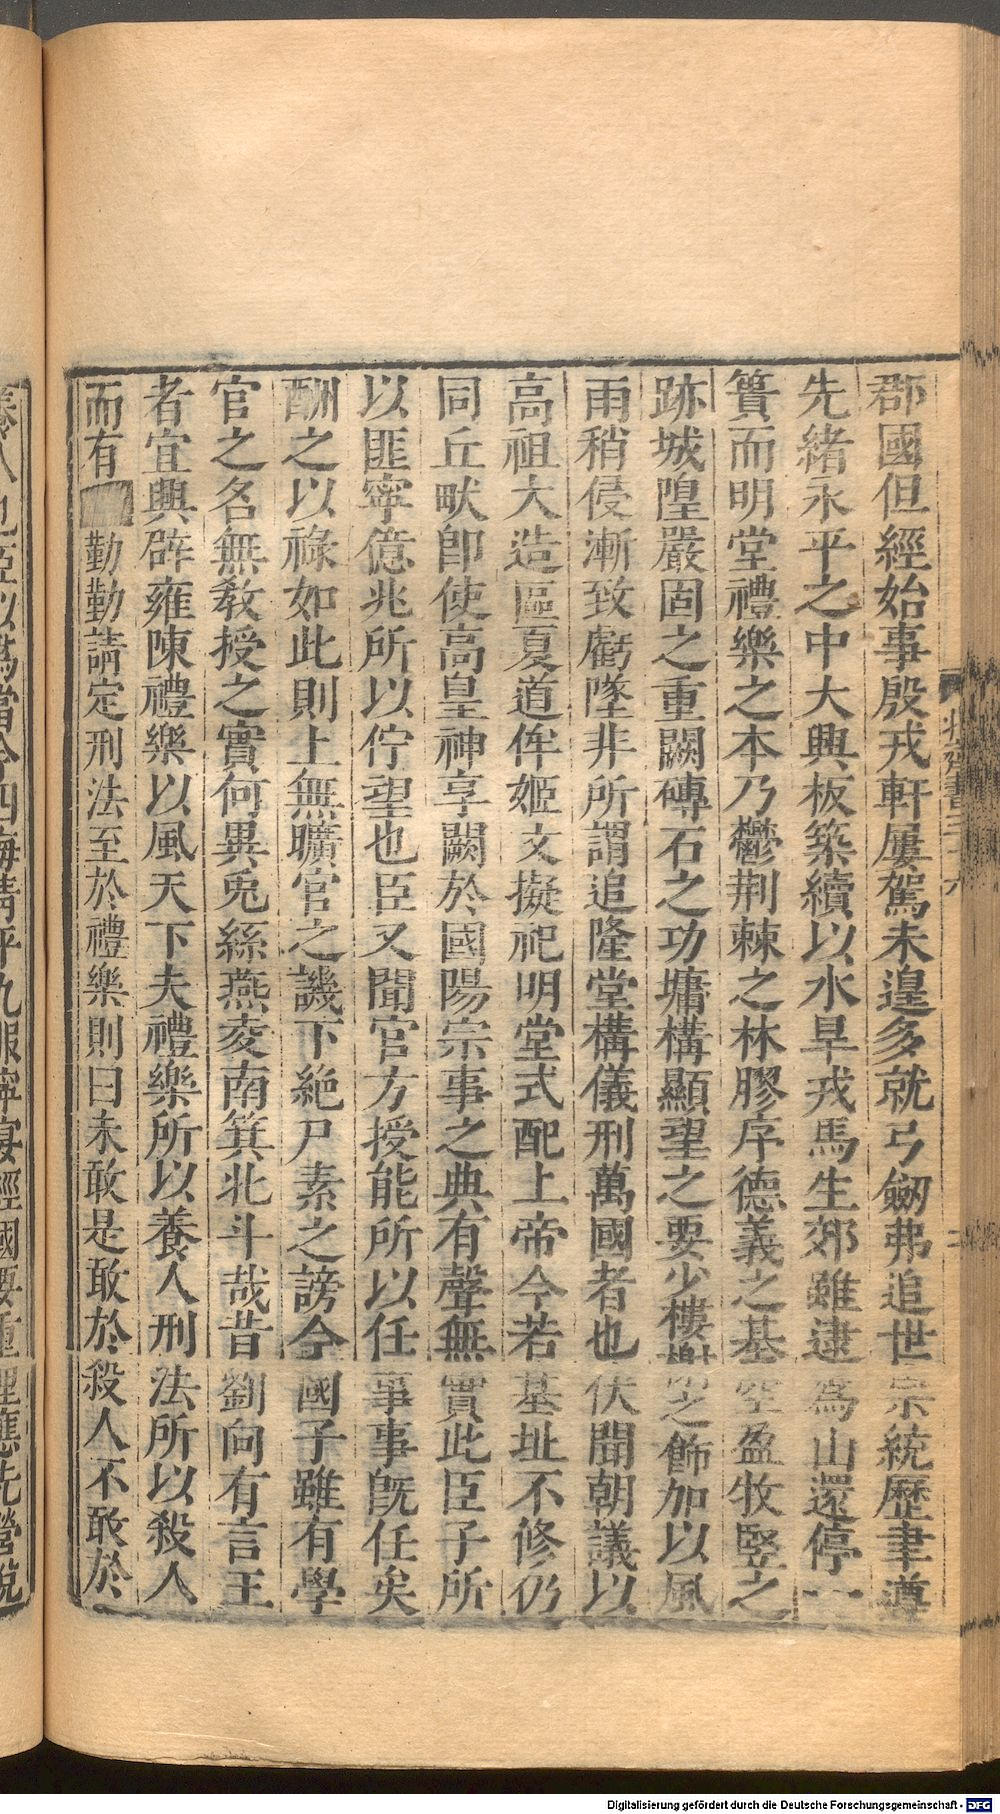 郡國但經始事殷戎軒屢駕未遑多就弓劒弗追世宗統歷聿遵
先緒永平之中大興板築續以水旱戎馬生郊雖逮為山還停一
簣而明堂禮樂之本乃鬱荆棘之林膠序德義之基空盈牧竪之
跡城隍嚴固之重闕磚石之功墉構顯望之要少樓榭之飾加以風
雨稍侵漸致虧墜非所謂追隆堂構儀刑萬國者也伏聞朝議以
高祖大造區夏道侔姬文擬祀明堂式配上帝今若基址不修仍
同丘畎卽使高皇神享闕於國陽宗事之典有聲無實此臣子所
以匪寧億兆所以佇望也臣又聞官方授能所以任事事旣任矣
酬之以祿如此則上無曠官之譏下絶尸素之謗今國子雖有學
官之名無敎授之實何異兎絲燕麥南箕北斗哉昔劉向有言王
者宜興辟雍陳禮樂以風天下夫禮樂所以養人刑法所以殺人
而有勤勤請定刑法至於禮樂則曰未敢是敢於殺人不敢於
養人也臣以為當今四海清平九服寧宴經國要重理應先營脫
Digitalisierung gefördert durch die Deutsche Forschungsgemeinschaft - DFG